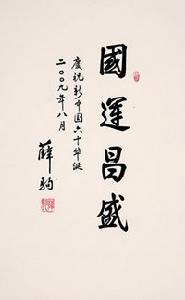 國運昌盛
慶祝新中国六十华诞
二〇〇九年八月
薛驹